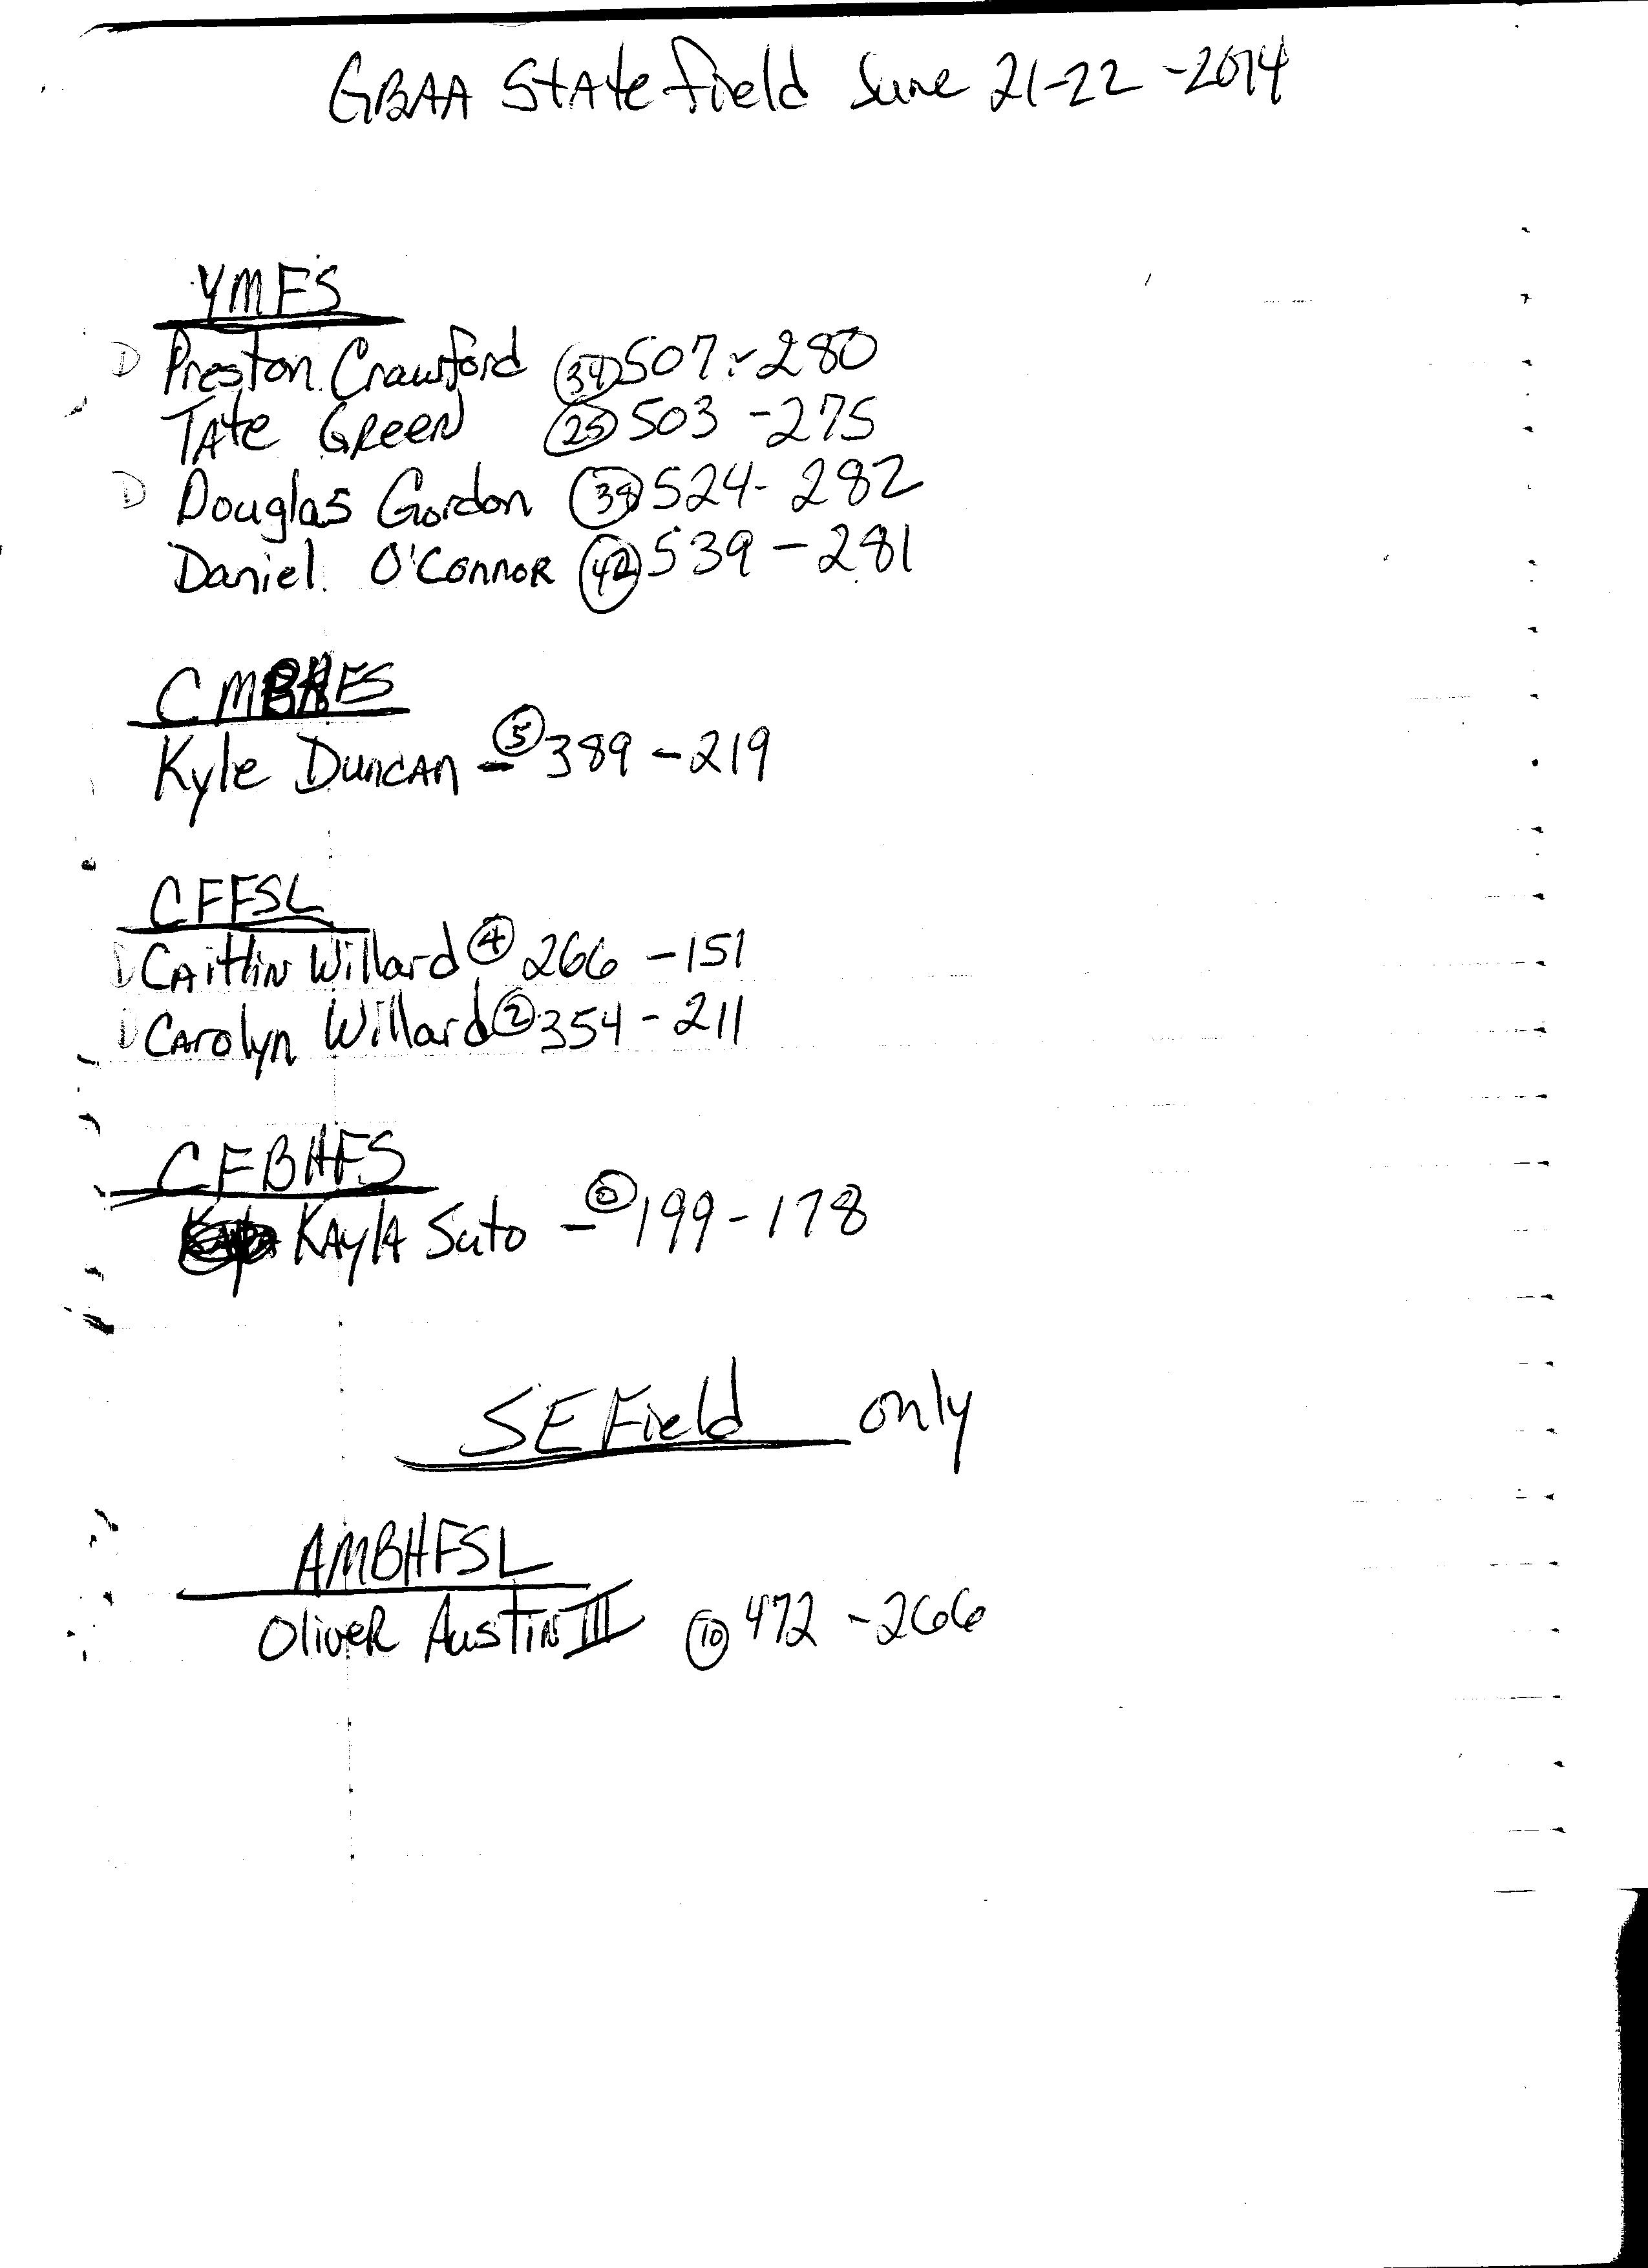 GBAA State field June 21-22-2014
YMFS
D Preston Crawford (34) 507-280
Tate Green (25) 503-275
D Douglas Gordon (38) 524-282
Daniel O'Connor (42) 539-281
CMBHFS
Kyle Duncan - (5) 389-219
CFFSL
D Caitlin Willard (4) 266-151
D Carolyn Willard (2) 354-211
CFBHFS
Kayla Suto - (0) 199-178
SE Field only
AMBHFSL
Oliver Austin III (10) 472-266